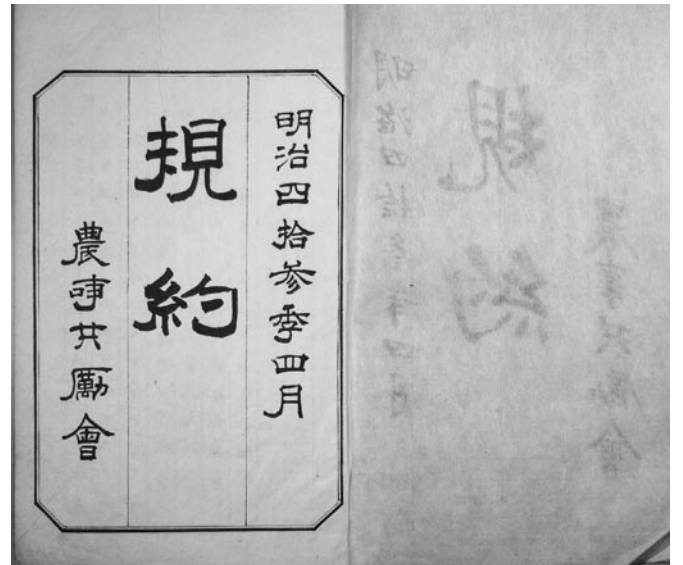 明治四拾参季四月
規約
農事共励會